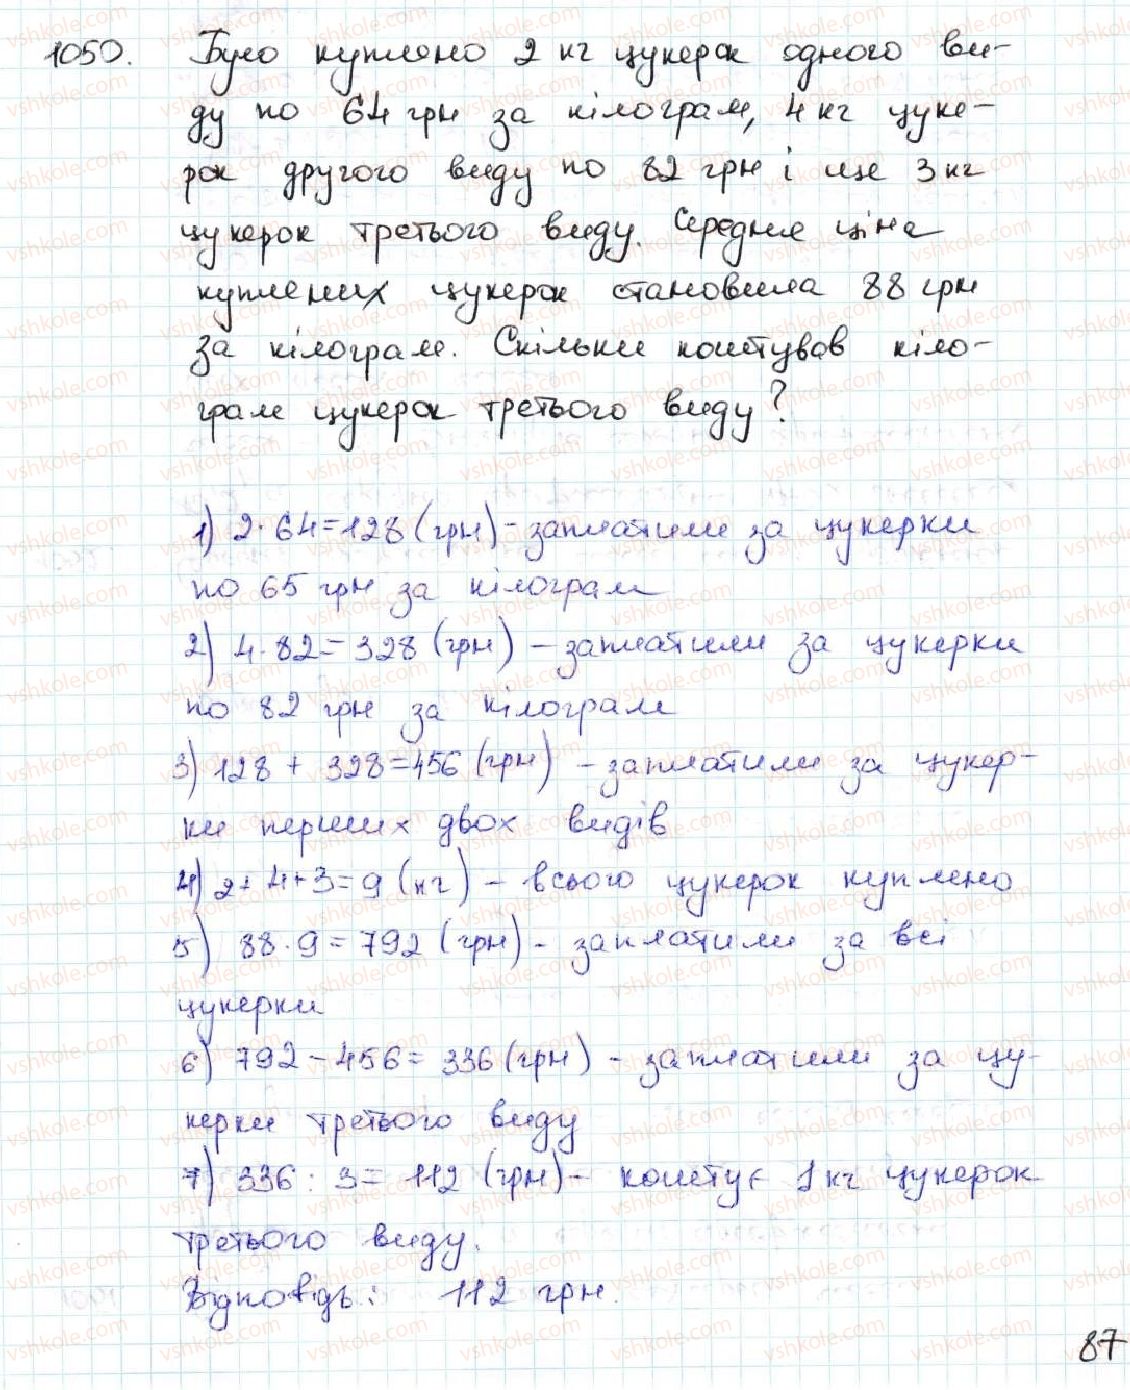 1050. Було куплено 2 кг цукерок одного ви-
ду по 64 грн за кілограм, 4 кг цуке-
рок другого виду по 82 грн і ще 3 кг
цукерок третього виду. Середня ціна
куплених цукерок становила 88 грн
за кілограм. Скільки коштував кіло-
грам цукерок третього виду?
1) 2·64=128 (грн) - заплатили за цукерки
по 65 грн за кілограм
2) 4·82=328 (грн) - заплатили за цукерки
по 82 грн за кілограм
3) 128+328=456 (грн) - заплатили за цукер-
ки перших двох видів
4) 2+4+3=9 (кг) - всього цукерок куплено
5) 88·9=792 (грн) - заплатили за всі
цукерки
6) 792-456=336 (грн) - заплатили за цу-
керки третього виду
7) 336:3=112 (грн) - коштує 1 кг цукерок
третього виду.
Відповідь: 112 грн.
87